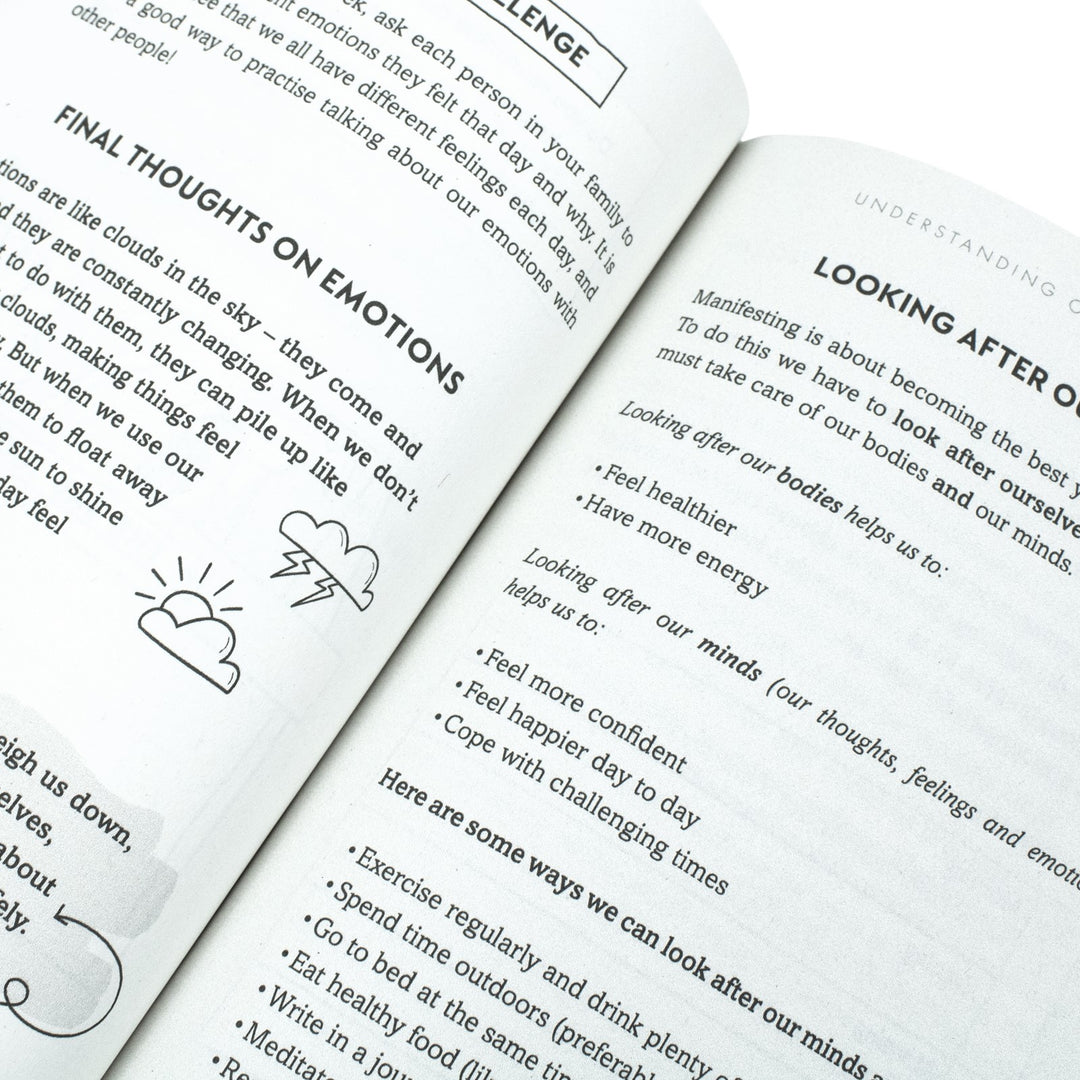 LLENGE
ask each person in your family to
emotions they felt that day and why. It is
that we all have different feelings each day, and
a good way to practise talking about our emotions with
other people!
FINAL THOUGHTS ON EMOTIONS
are like clouds in the sky – they come and
they are constantly changing. When we don't
to do with them, they can pile up like
clouds, making things feel
But when we use our
them to float away
sun to shine
day feel
us down,
about
UNDERSTANDING
LOOKING AFTER
Manifesting is about becoming the best
To do this we have to look after ourselve
must take care of our bodies and our minds.
Looking after our bodies helps us to:
• Feel healthier
• Have more energy
Looking after our minds (our thoughts, feelings and emotio
helps us to:
• Feel more confident
• Feel happier day to day
• Cope with challenging times
Here are some ways we can look after our minds
• Exercise regularly and drink plenty
• Spend time outdoors (preferabl
• Go to bed at the same tim
• Eat healthy food (lik
• Write in a jour
• Meditate
• Re